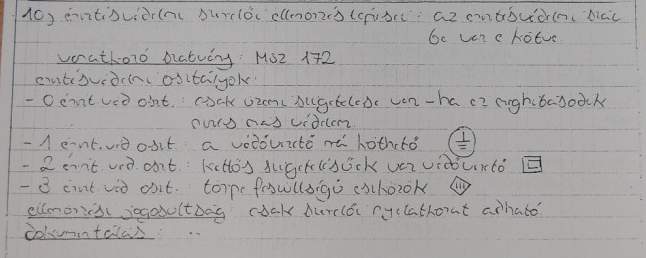 10, érintésvédelmi szerelői ellenőrzés lépései: az érintésvédelmi
be van e kötve
vonatkozó szabvány: MSZ 172
érintésvédelmi osztályok:
- 0 érint véd oszt.: csak üzemi szigetelése van - ha ez meghibásodik
nincs más védelem
- 1 érint. véd oszt a védővezető rá köthető
- 2 érint. véd. oszt: kettős szigetelésűek van védővezető
- 3 érint véd oszt. törpe feszültségű eszközök
ellenőrzési jogosultság csak szerelői nyilatkozat adható
dokumentálás: ..